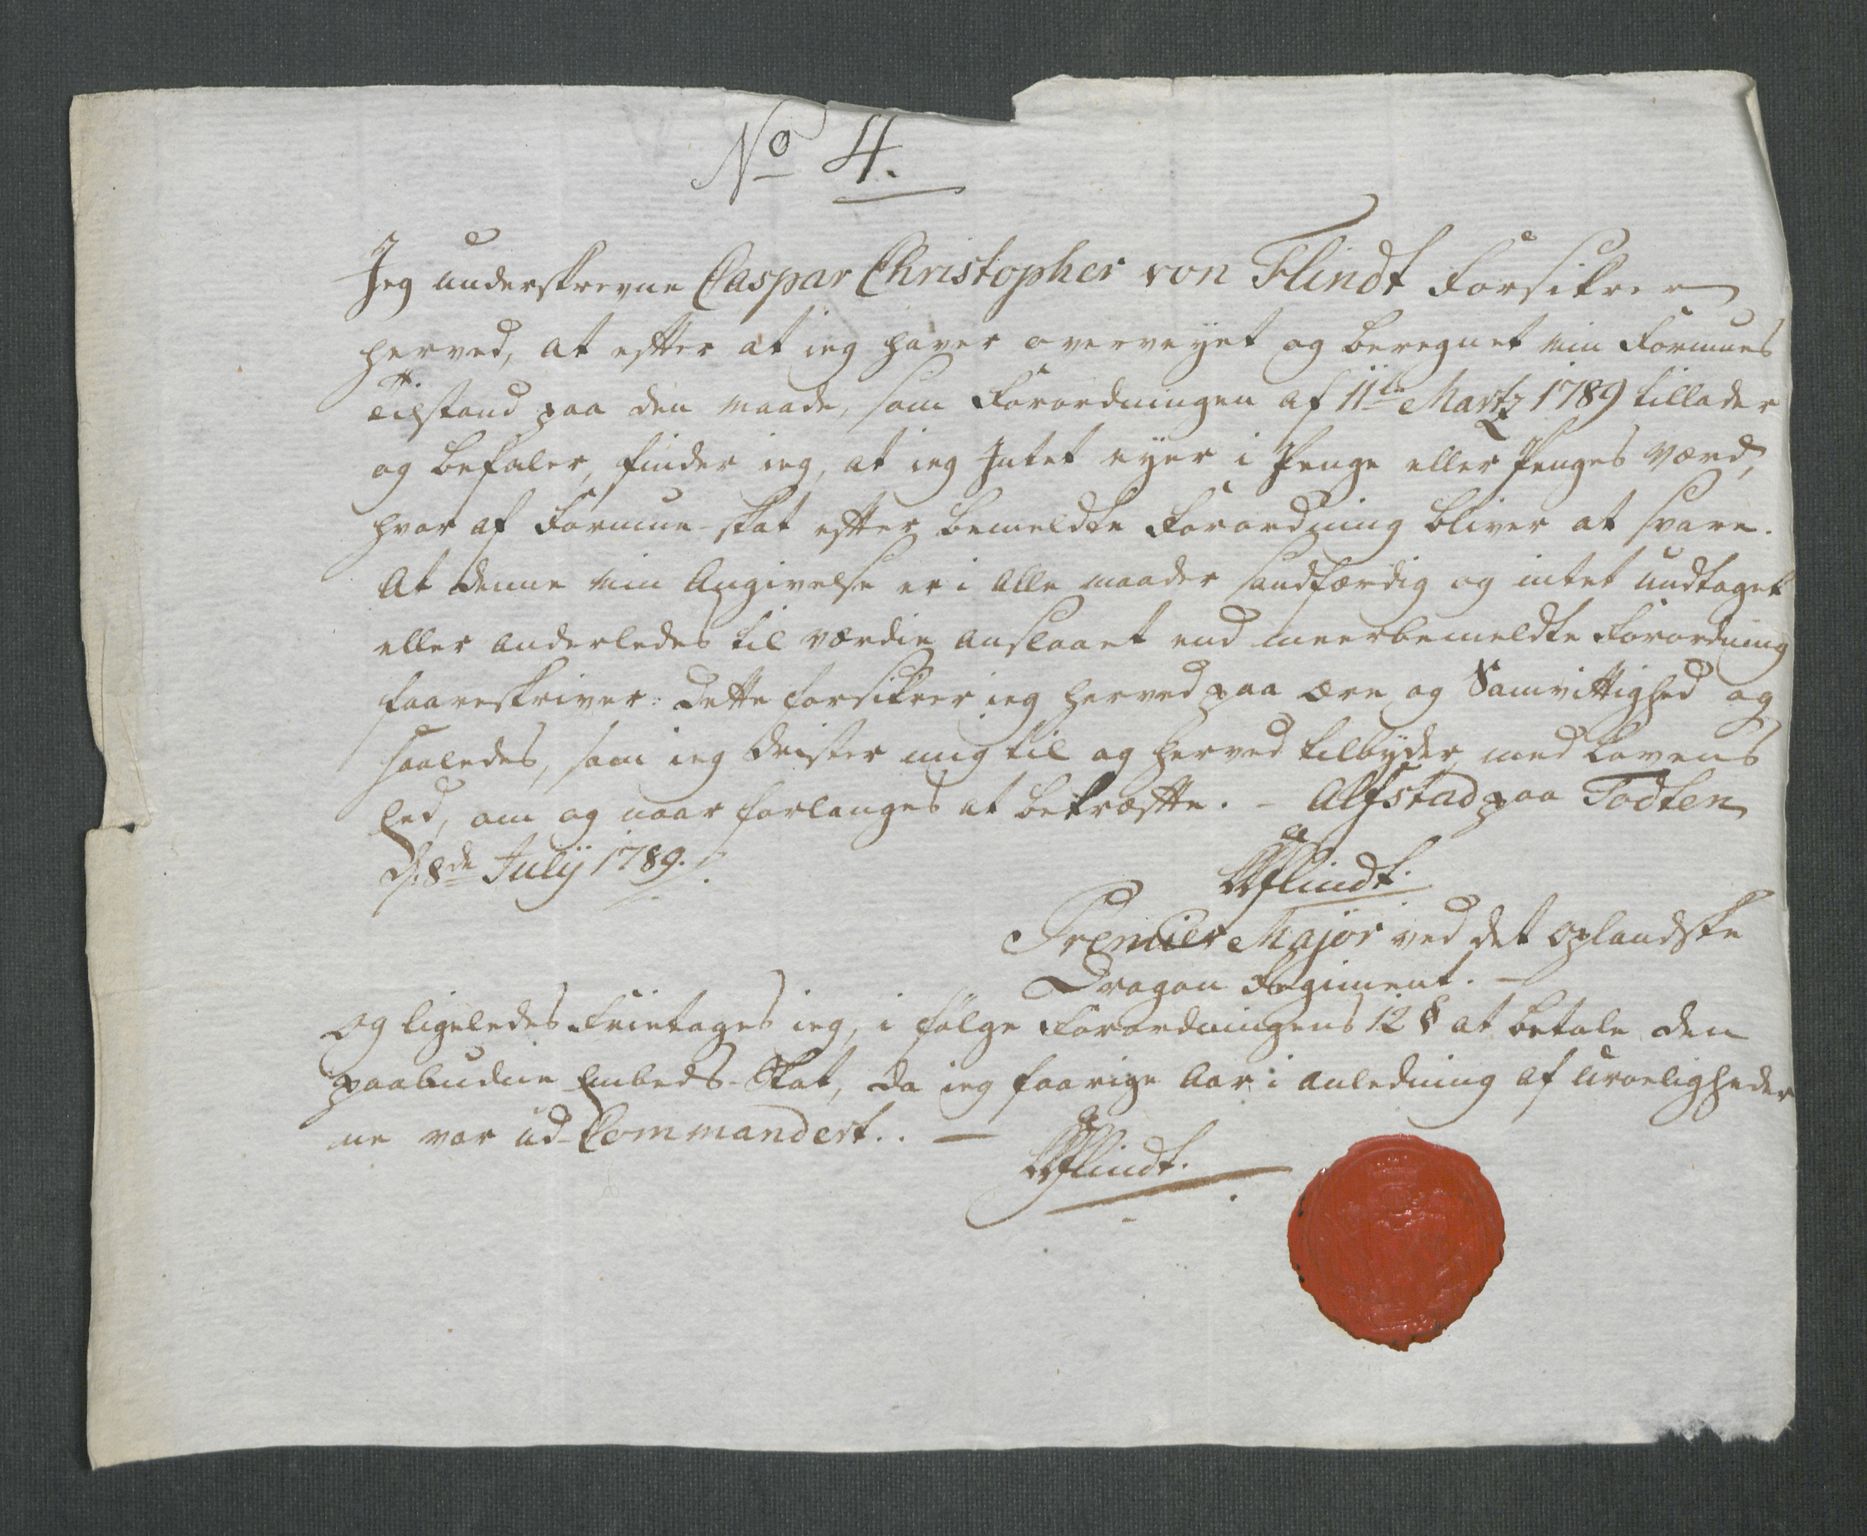 No 4.
Jeg underskrevne Caspar Christopher von Flindt forsikrer
herved, at efter at ieg haver overveyet og beregnet min Formues
Tilstand paa den maade, som Forordningen af 11te Martz 1789 tillader
og befaler, finder ieg, at ieg Intet eyer i Penge eller Penges Værd,
hvor af Formue-skat efter bemeldte Forordning bliver at svare.
At denne min Angivelse er i Alle maader sandfærdig og intet undtaget
eller anderledes til værdie anslaaet end meerbemeldte Forordning
foareskriver: Dette forsikrer ieg herved paa ære og Samvittighed og
saaledes, som ieg drister mig til og herved tilbyder med Lovens
Eed, om og naar forlanges at bekræfte. - Alfstad paa Todten
d: 8de Julij 1789.
Flindt.
Premier Major ved det oplandske
Dragon Regiment. -
Og ligeledes frietages ieg, i følge Forordningens 12 § at betale den
paabudne Embeds-Skat, da ieg foarige Aar i anledning af Uroeligheder
ne var ud-Commandert.. -
Flindt.